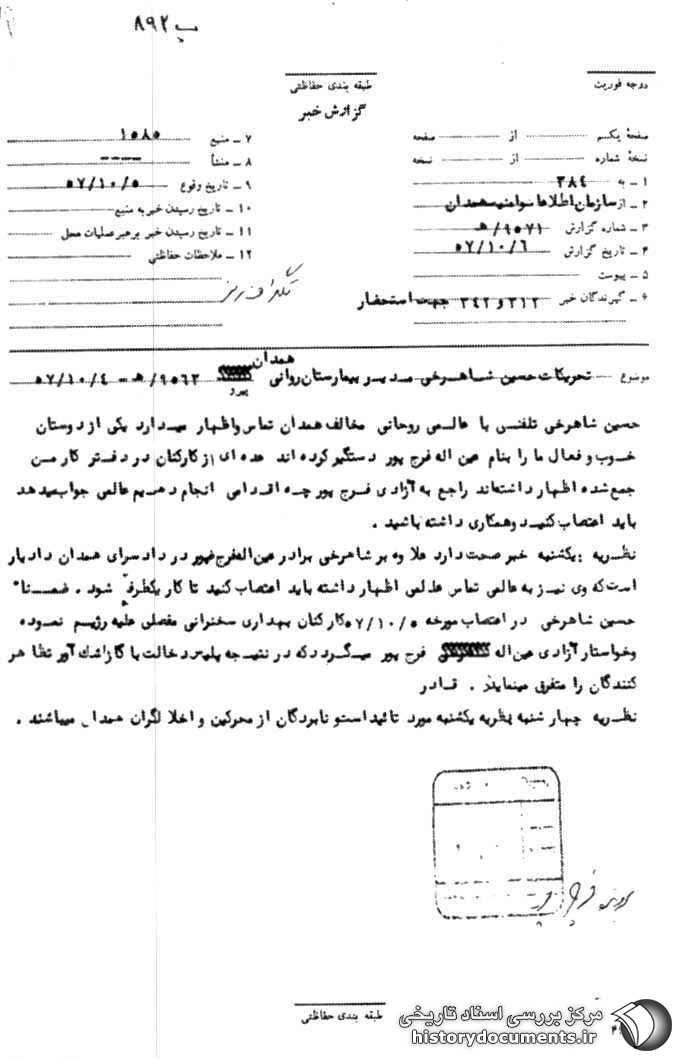 ب ۸۹۲
طبقه بندی حفاظتی
گزارش خبر
درجه فوریت
صفحهٔ یکم از صفحه
نسخهٔ شماره از نسخه
۱ ـ به ۳۸۴
۲ ـ از سازمان اطلاعات وامنیت همدان
۳ ـ شماره گزارش ۹۵۷۱/هـ
۴ ـ تاریخ گزارش ۵۷/۱۰/۶
۵ ـ پیوست
۶ ـ گیرندگان خبر ۳۱۲ و ۳۴۲ جهت استحضار
۷ ـ منبع ۱۵۸۵
۸ ـ منشأ ----
۹ ـ تاریخ وقوع ۵۷/۱۰/۵
۱۰ ـ تاریخ رسیدن خبر به منبع
۱۱ ـ تاریخ رسیدن خبر برهبر عملیات محل
۱۲ ـ ملاحظات حفاظتی
موضوع تحریکات حسین شاهرخی مدیر بیمارستان روانی همدان
پیرو ۹۵۶۳/هـ - ۵۷/۱۰/۴
حسین شاهرخی تلفنی با عالمی روحانی مخالف همدان تماس واظهار میدارد یکی از دوستان
خوب و فعال ما را بنام عین اله فرج پور دستگیر کرده اند عده ای از کارکنان در دفتر کار من
جمع شده اظهار داشته‌اند راجع به آزادی فرج پور چه اقدامی انجام دهیم عالمی جواب میدهد
باید اعتصاب کنید وهمکاری داشته باشید .
نظریه یکشنبه خبر صحت دارد علاوه بر شاهرخی برادر عین اله فرج پور در دادسرای همدان دادیار
است که وی نیز به عالمی تماس عالمی اظهار داشته باید اعتصاب کنید تا کار یکطرفه شود . ضمناً
حسین شاهرخی در اعتصاب مورخه ۵۷/۱۰/۵ کارکنان بهداری سخنرانی مفصلی علیه رژیم نموده
وخواستار آزادی عین اله فرج پور میگردد که در نتیجه پلیس دخالت با گاز اشک آور تظاهر
کنندگان را متفرق مینماید . قادر
نظریه چهارشنبه نظریه یکشنبه مورد تائید است و نامبردگان از محرکین و اخلالگران همدان میباشند .
طبقه بندی حفاظتی
مرکز بررسی اسناد تاریخی
historydocuments.ir